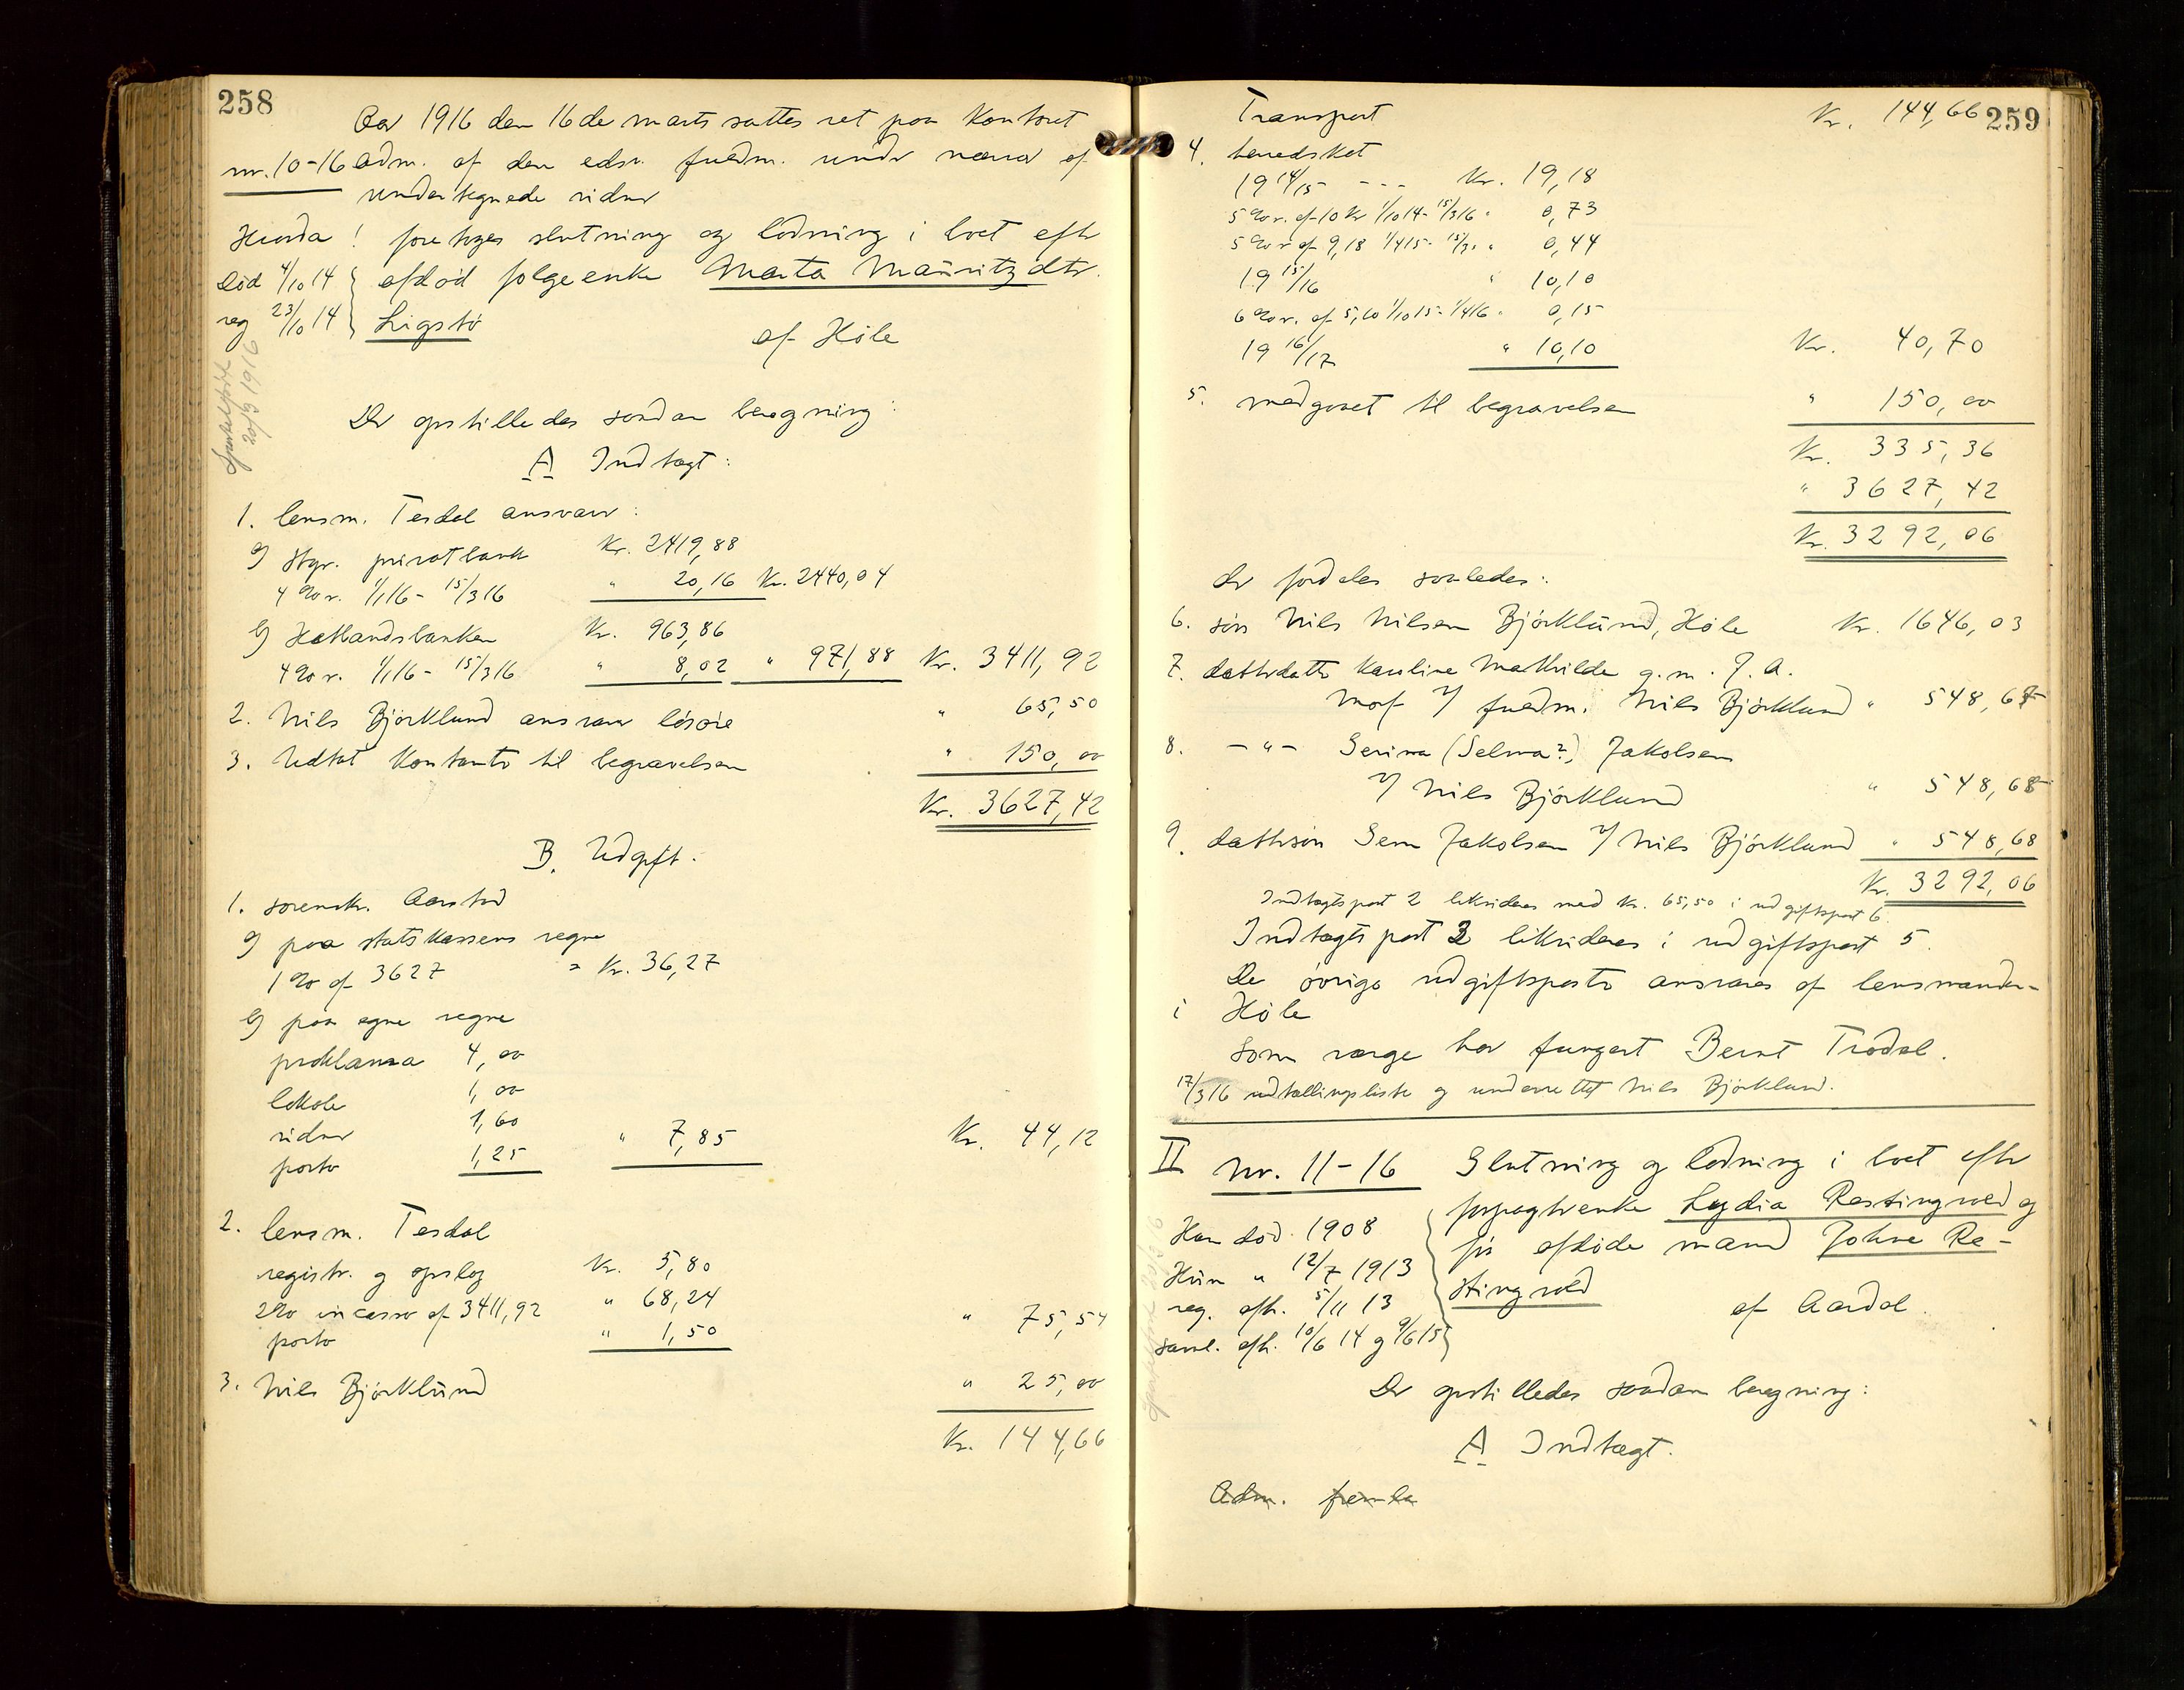 258
Aar 1916 den 16de marts sattes ret paa kontoret
nr. 10-16 adm. af den edsv. fuldm. under nærvær af
undertegnede vidner
Hvorda! foretoges slutning og lodning i boet efter
død 4/10 14 afdød folgeenke Marta Mauritzdtr.
reg 23/10 14 Ligstø
af Høle
20/9 1916
Der opstilledes saadan beregning:
A Indtægt:
1. lensm. Tesdal ansvarer:
a) Stgr. privatbank Kr. 2419,88
4 % r. 1/1 16 - 15/3 16 " 20,16 Kr. 2440,04
b) Hetlandsbanken Kr. 963,86
4 % r. 1/1 16 - 15/3 16 " 8,02 " 971,88 Kr. 3411,92
2. Nils Bjørklund ansvarer løsøre " 65,50
3. Udtat kontanter til begravelsen " 150,00
Kr. 3627,42
B. Udgift.
1. sorensk. Aarstad
a) paa statskassens regne
1 % af 3627 = Kr. 36,27
b) paa egne regne
proklama 4,00
lokale 1,00
vidner 1,60
porto 1,25 " 7,85 Kr. 44,12
2. lensm. Tesdal
registr. og opslag Kr. 5,80
2% incasso af 3411,92 " 68,24
porto " 1,50 " 75,54
3. Nils Bjørklund " 25,00
Kr. 144,66
259
Transport Kr. 144,66
4. herredskat
19 14/15 --- Kr. 19,18
5 % r. af 10 Kr 1/10 14 - 15/3 16 " 0,73
5 % r af 9,18 1/4 15 - 15/3 " 0,44
19 15/16 " 10,10
6 % r. af 5,10 1/10 15 - 1/4 16 " 0,15
19 16/17 " 10,10 Kr. 40,70
5. medgaaet til begravelsen " 150,00
Kr. 335,36
" 3627,42
Kr. 3292,06
der fordeles saaledes:
6. søn Nils Nilsen Bjørklund, Høle Kr. 1646,03
7. datterdatter Karoline Mathilde g.m. J. A.
Morf v/ fuldm. Nils Bjørklund " 548,67
8. -"- Serina (Selma?) Jakobsen
v/ Nils Bjørklund " 548,68
9. dattersøn Sem Jakobsen v/ Nils Bjørklund " 548,68
Kr. 3292,06
Indtægtspost 2 likvideres med kr. 65,50 i udgiftspost 6.
Indtægtspost 3 likvideres i udgiftspost 5.
De øvrige udgiftsposter ansvares af lensmanden
i Høle
Som værge har fungert Bernt Trødal.
17/3 16 udtællingsliste og underrettet Nils Bjørklund.
II nr. 11-16 Slutning og lodning i boet efter
forpagterenke Lydia Restingvold og
Han død 1908 før afdøde mand Johne Re-
Hun " 12/7 1913 stingvold
reg. efter. 5/11 13 af Aardal.
saml. efter. 10/6 14 og 9/6 15
Der opstilledes saadan beregning:
A Indtægt.
Adm. fremla